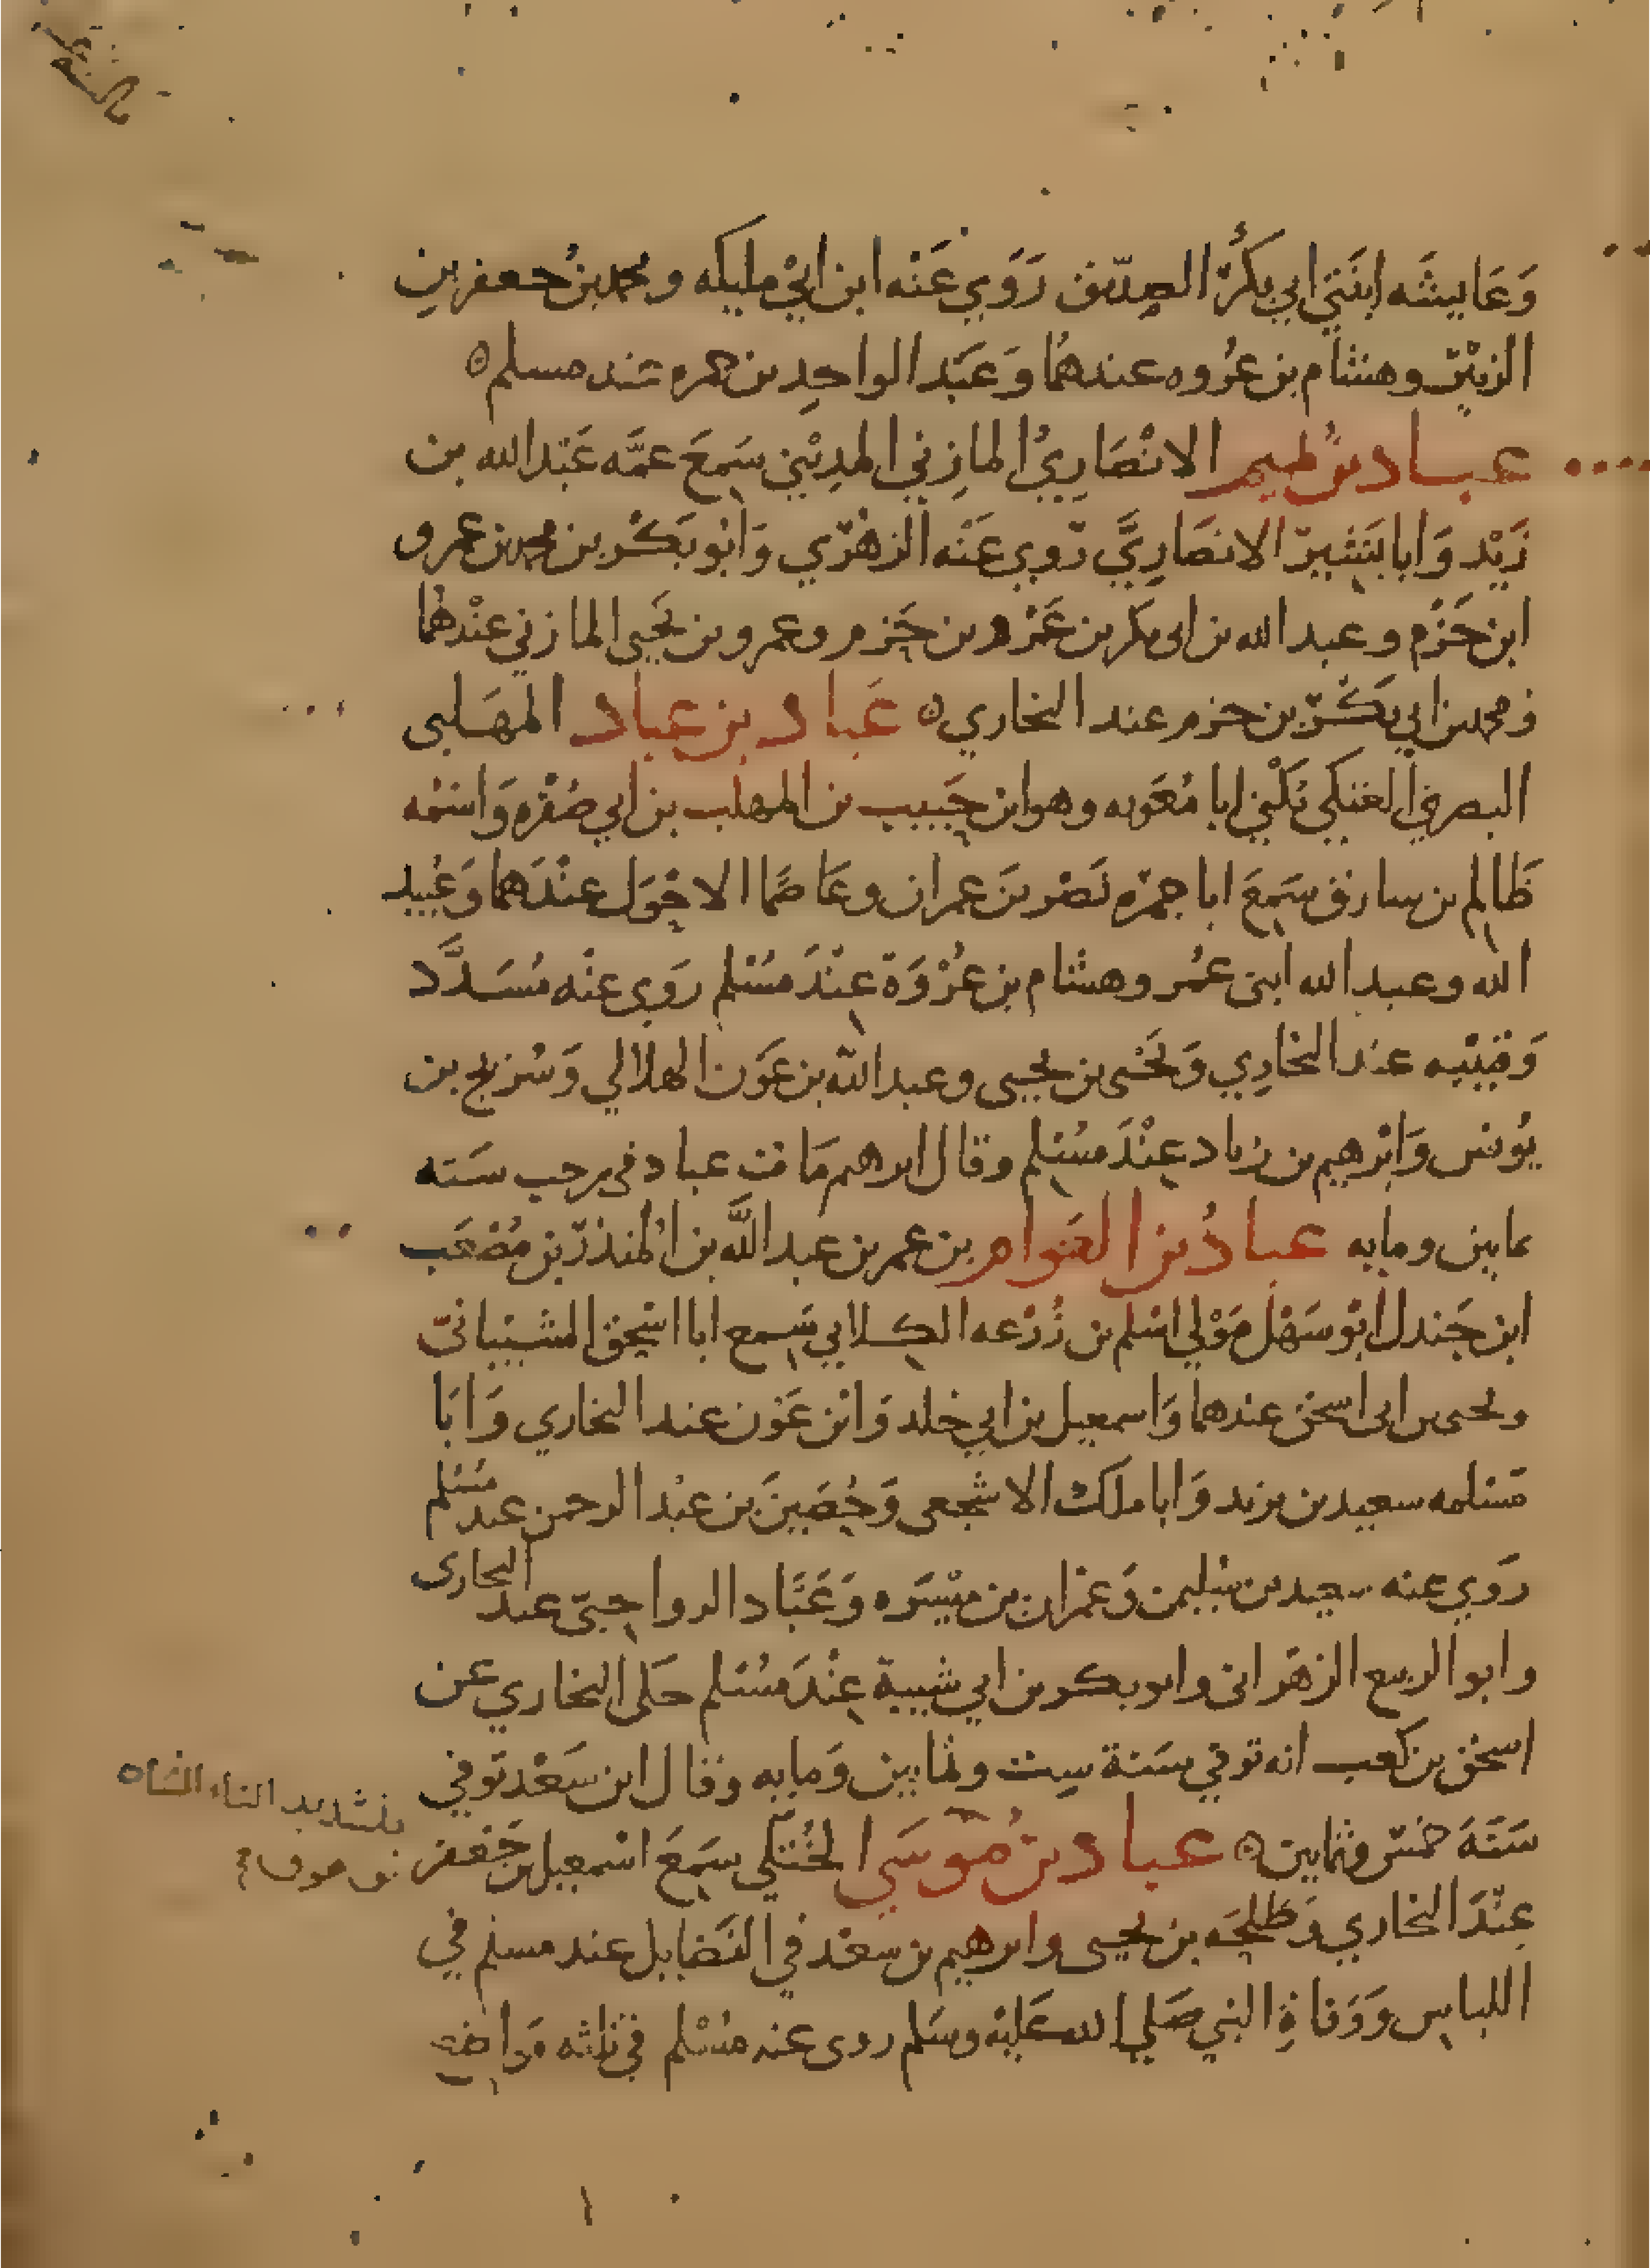 وَعَايشَه ابنَتي ابي بكرٍ الصِدّيق رَوَي عَنْه ابن ابيْ مليكه ومحمد بنُ جعفر بنِ
الزبَيْرِ وهشام بن عُروه عندهُما وَعَبْد الواحِد بن حمزه عند مسلم ه
عباد بنُ تميم الانْصَارِيُ المازِني المدِيْني سَمِعَ عمَّه عَبْد الله بن
زَيْد وَابا بَشِير الانصَارِيَّ رَوي عَنْه الزهْرِي وَابُو بَكْر بن محمد بن عمرو
ابن حَزْم وعبد الله بن ابى بكر بن عَمْرو بن حَزم وعمرو بن يَحْيى المازني عنْدهُما
ومحمد بن ابي بَكْر بن حزم عند البخاري ه عَباد بن عباد المهَلبى
البصري العتكي يُكَنْي ابا مُعَويه وهو ابن حَبيب بن المهلب بن ابي صُفْره وَاسْمُه
ظَالِم بن سارق سَمِعَ ابا جمْره نَصْر بنَ عمران وعَاصِمًا الاحْوَل عنْدَهما وَعُبيد
الله وعبد الله ابنى عُمر وهشام بن عُرْوَة عِنْدَ مسْلم رَوي عنْه مُسَدَّد
وَقتيْبه عند البخارِي وَيَحْيى بن يحيى وعبد الله بن عَوْن الهلالي وَسُريْج بن
يُونس وَابْرهيم بن زياد عِنْدَ مسْلِم وقال ابرهيم مَات عباد في رجب سَنَه
ثمانين ومايه عبادُ بن العَوام بن عمر بن عبد اللَّه بن المُنذر بن مُصْعَب
ابن جَندل ابُو سَهْل مَوْلي اسْلم بن زُرْعه الكلابي سَمِع ابا اسْحق الشيبانيّ
ويحيى بن ابى اسحق عندهما وَاسمعيل بن ابي خلد وَابْن عَوْن عند البخاري وَابَا
مَسْلمه سعيد بن يزيد وَابا ملك الاشجعى وَحُصَيْنَ بن عبْد الرحمن عند مسْلم
رَوَي عنه سعيد بن سُليمن وَعمْران بن ميْسَره وَعَبَّاد الرواجنيّ عند البخارى
وابو الربيع الزهْرانى وابو بكر بن ابي شيبة عِنْدَ مسْلم حَكى البخاري عن
اسحق بن كعب انه توفي سَنة سِت وثمانين وَمايه وقال ابن سَعْد توفي
سَنَةَ خمس وثمانين ه عباد بنُ مُوسَي الخُتَّلي سَمِعَ اسْمعيل بن جَعْفر
بتشديد التاء المثناه
عِنْدَ البخاري وَطلحَه بن يحيى وابرهيم بن سَعْد في الفضَايل عند مسلم في
اللباسِ وَوَفاةِ النبي صَلي الله عَليْه وسَلم روى عنه مسْلم في ثلثه مَواضع